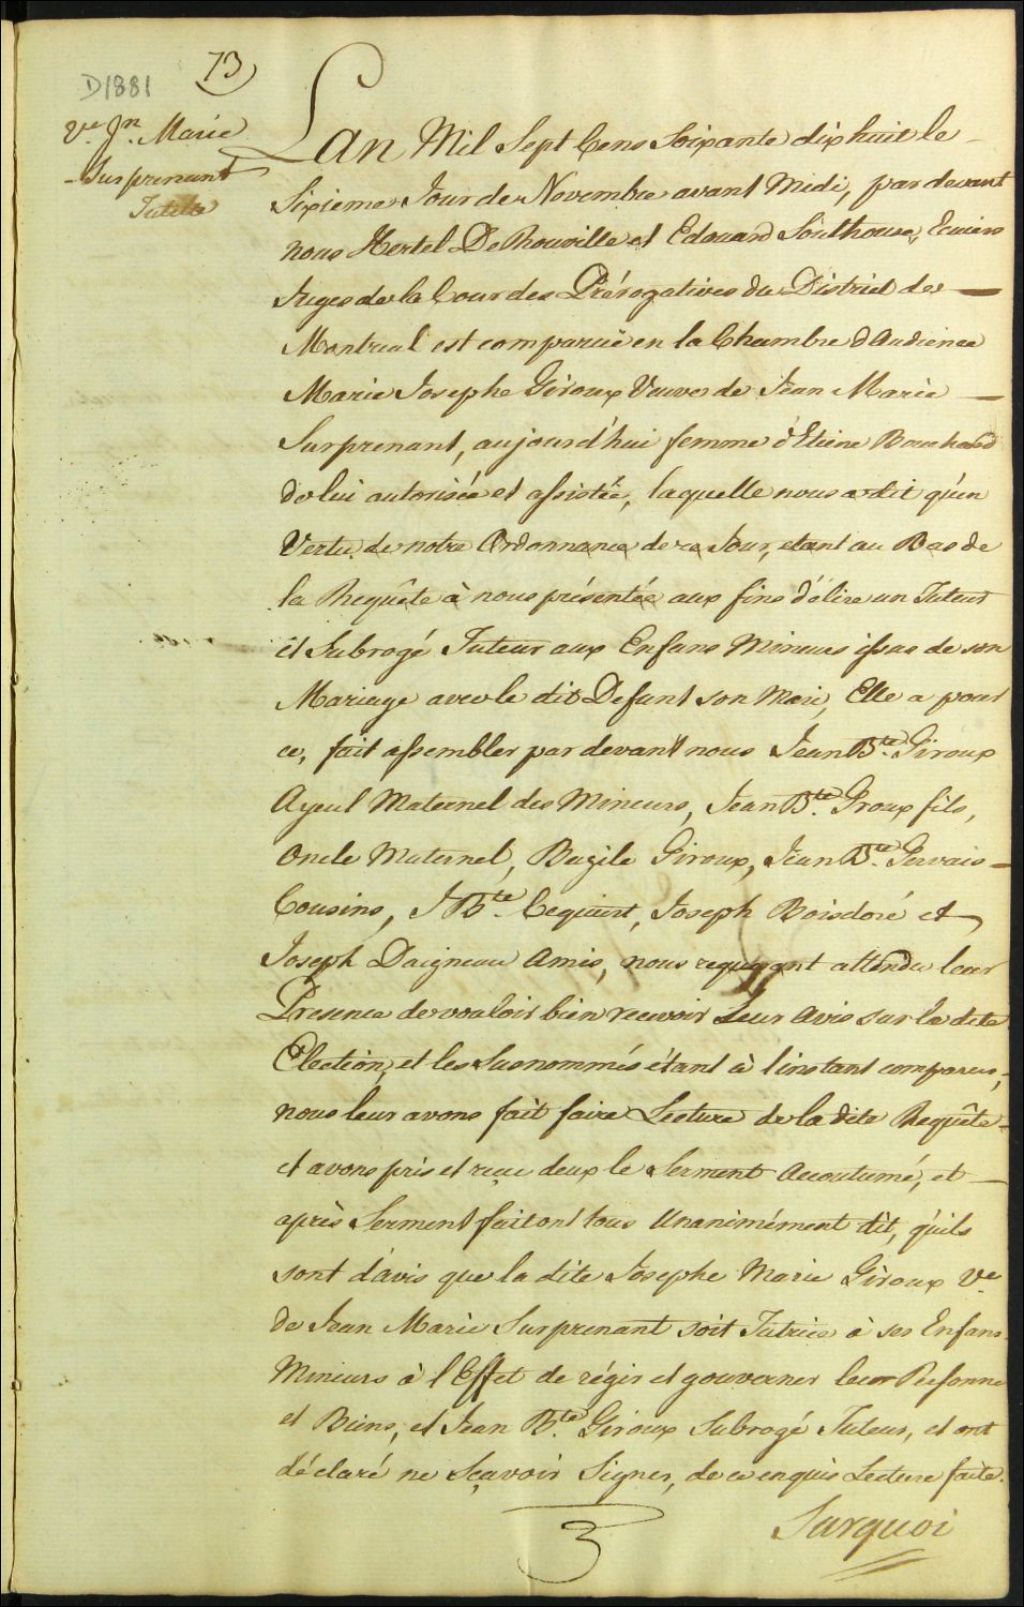 73
D1881
Ve. Jn. Marie
- Surprenant
Tutelle
Lan Mil Sept Cens Soixante dix huit le
Sixieme Jour de Novembre avant Midi, par devant
nous Hertel De Rouville et Edouard Southouse, Ecuiers
Juges de la Cour des Prérogatives du District de
Montreal est comparuë en la Chambre d'Audience
Marie Josephe Giroux Veuve de Jean Marie
Surprenant, aujourd'hui femme d'Etiene Bouchard
de lui autorisée et assistée, laquelle nous a dit qu'en
Vertu de notre Ordonnance de ce Jour, etant au Bas de
la Requête à nous présentée aux fins d'élire un Tuteur
et Subrogé Tuteur aux Enfans Mineurs issus de son
Mariage avec le dit Defunt son Mari, Elle a pour
ce, fait assembler par devant nous Jean Bte. Giroux
Ayeul Maternel des Mineurs, Jean Bte. Groux fils,
Oncle Maternel, Bazile Giroux, Jean Bte. Gervais
Cousins, J Bte. Cequiert, Joseph Boisdoré et
Joseph Daigneau Amis, nous requerant attendu leur
Presence de vouloir bien recevoir Leur Avis sur la dite
Election, et les Susnommés étant à l'instant comparus,
nous leur avons fait faire Lecture de la dite Requête
et avons pris et reçu deux le Serment Accoutumé, et
après Serment fait ont tous Unanimément dit, qu'ils
sont d'avis que la dite Josephe Marie Giroux Ve
de Jean Marie Surprenant soit Tutrice à ses Enfans
Mineurs à l'Effet de régir et gouverner leur Personne
et Biens, et Jean Bte. Giroux Subrogé Tuteur, et ont
déclaré ne Sçavoir Signer, de ce enquis Lecture faite.
Surquoi
3